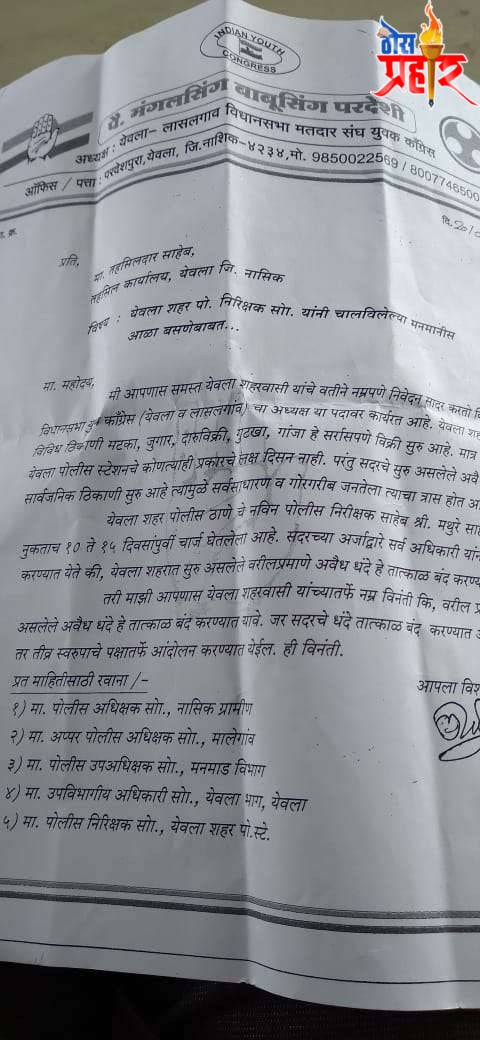 ठोस
प्रहार
INDIAN YOUTH
CONGRESS
पै. मंगलसिंग बाबूसिंग परदेशी
अध्यक्ष : येवला- लासलगाव विधानसभा मतदार संघ युवक काँग्रेस
ऑफिस / पत्ता : परदेशपुरा, येवला, जि.नाशिक-४२३४, मो. 9850022569 / 8007746500
दि. 20/
प्रति,
मा. तहसिलदार साहेब,
तहसिल कार्यालय, येवला जि. नासिक
विषय : येवला शहर पो. निरिक्षक सोा. यांनी चालविलेल्या मनमानीस
आळा बसणेबाबत...
मा. महोदय,
मी आपणास समस्त येवला शहरवासी यांचे वतीने नम्रपणे निवेदन सादर करतो
विधानसभा युवक काँग्रेस (येवला व लासलगांव) चा अध्यक्ष या पदावर कार्यरत आहे. येवला
विविध ठिकाणी मटका, जुगार, दारुविक्री, गुटखा, गांजा हे सर्रासपणे विक्री सुरु आहे. मात्र
येवला पोलीस स्टेशनचे कोणत्याही प्रकारचे लक्ष दिसन नाही. परंतु सदरचे सुरु असलेले
सार्वजनिक ठिकाणी सुरु आहे त्यामुळे सर्वसाधारण व गोरगरीब जनतेला त्याचा त्रास होत
येवला शहर पोलीस ठाणे चे नविन पोलीस निरीक्षक साहेब श्री. मथुरे
नुकताच १० ते १५ दिवसांपुर्वी चार्ज घेतलेला आहे. सदरच्या अर्जाद्वारे सर्व अधिकारी
करण्यात येते की, येवला शहरात सुरु असलेले वरीलप्रमाणे अवैध धंदे हे तात्काळ बंद
तरी माझी आपणास येवला शहरवासी यांच्यातर्फे नम्र विनंती कि, वरील
असलेले अवैध धंदे हे तात्काळ बंद करण्यात यावे. जर सदरचे धंदे तात्काळ बंद करण्यात
तर तीव्र स्वरुपाचे पक्षातर्फे आंदोलन करण्यात येईल. ही विनंती.
प्रत माहितीसाठी रवाना /-
आपला
१) मा. पोलीस अधिक्षक सोा., नासिक ग्रामीण
२) मा. अप्पर पोलीस अधिक्षक सोा., मालेगांव
३) मा. पोलीस उपअधिक्षक सोा., मनमाड विभाग
४) मा. उपविभागीय अधिकारी सोा., येवला भाग, येवला
५) मा. पोलीस निरिक्षक सोा., येवला शहर पो.स्टे.